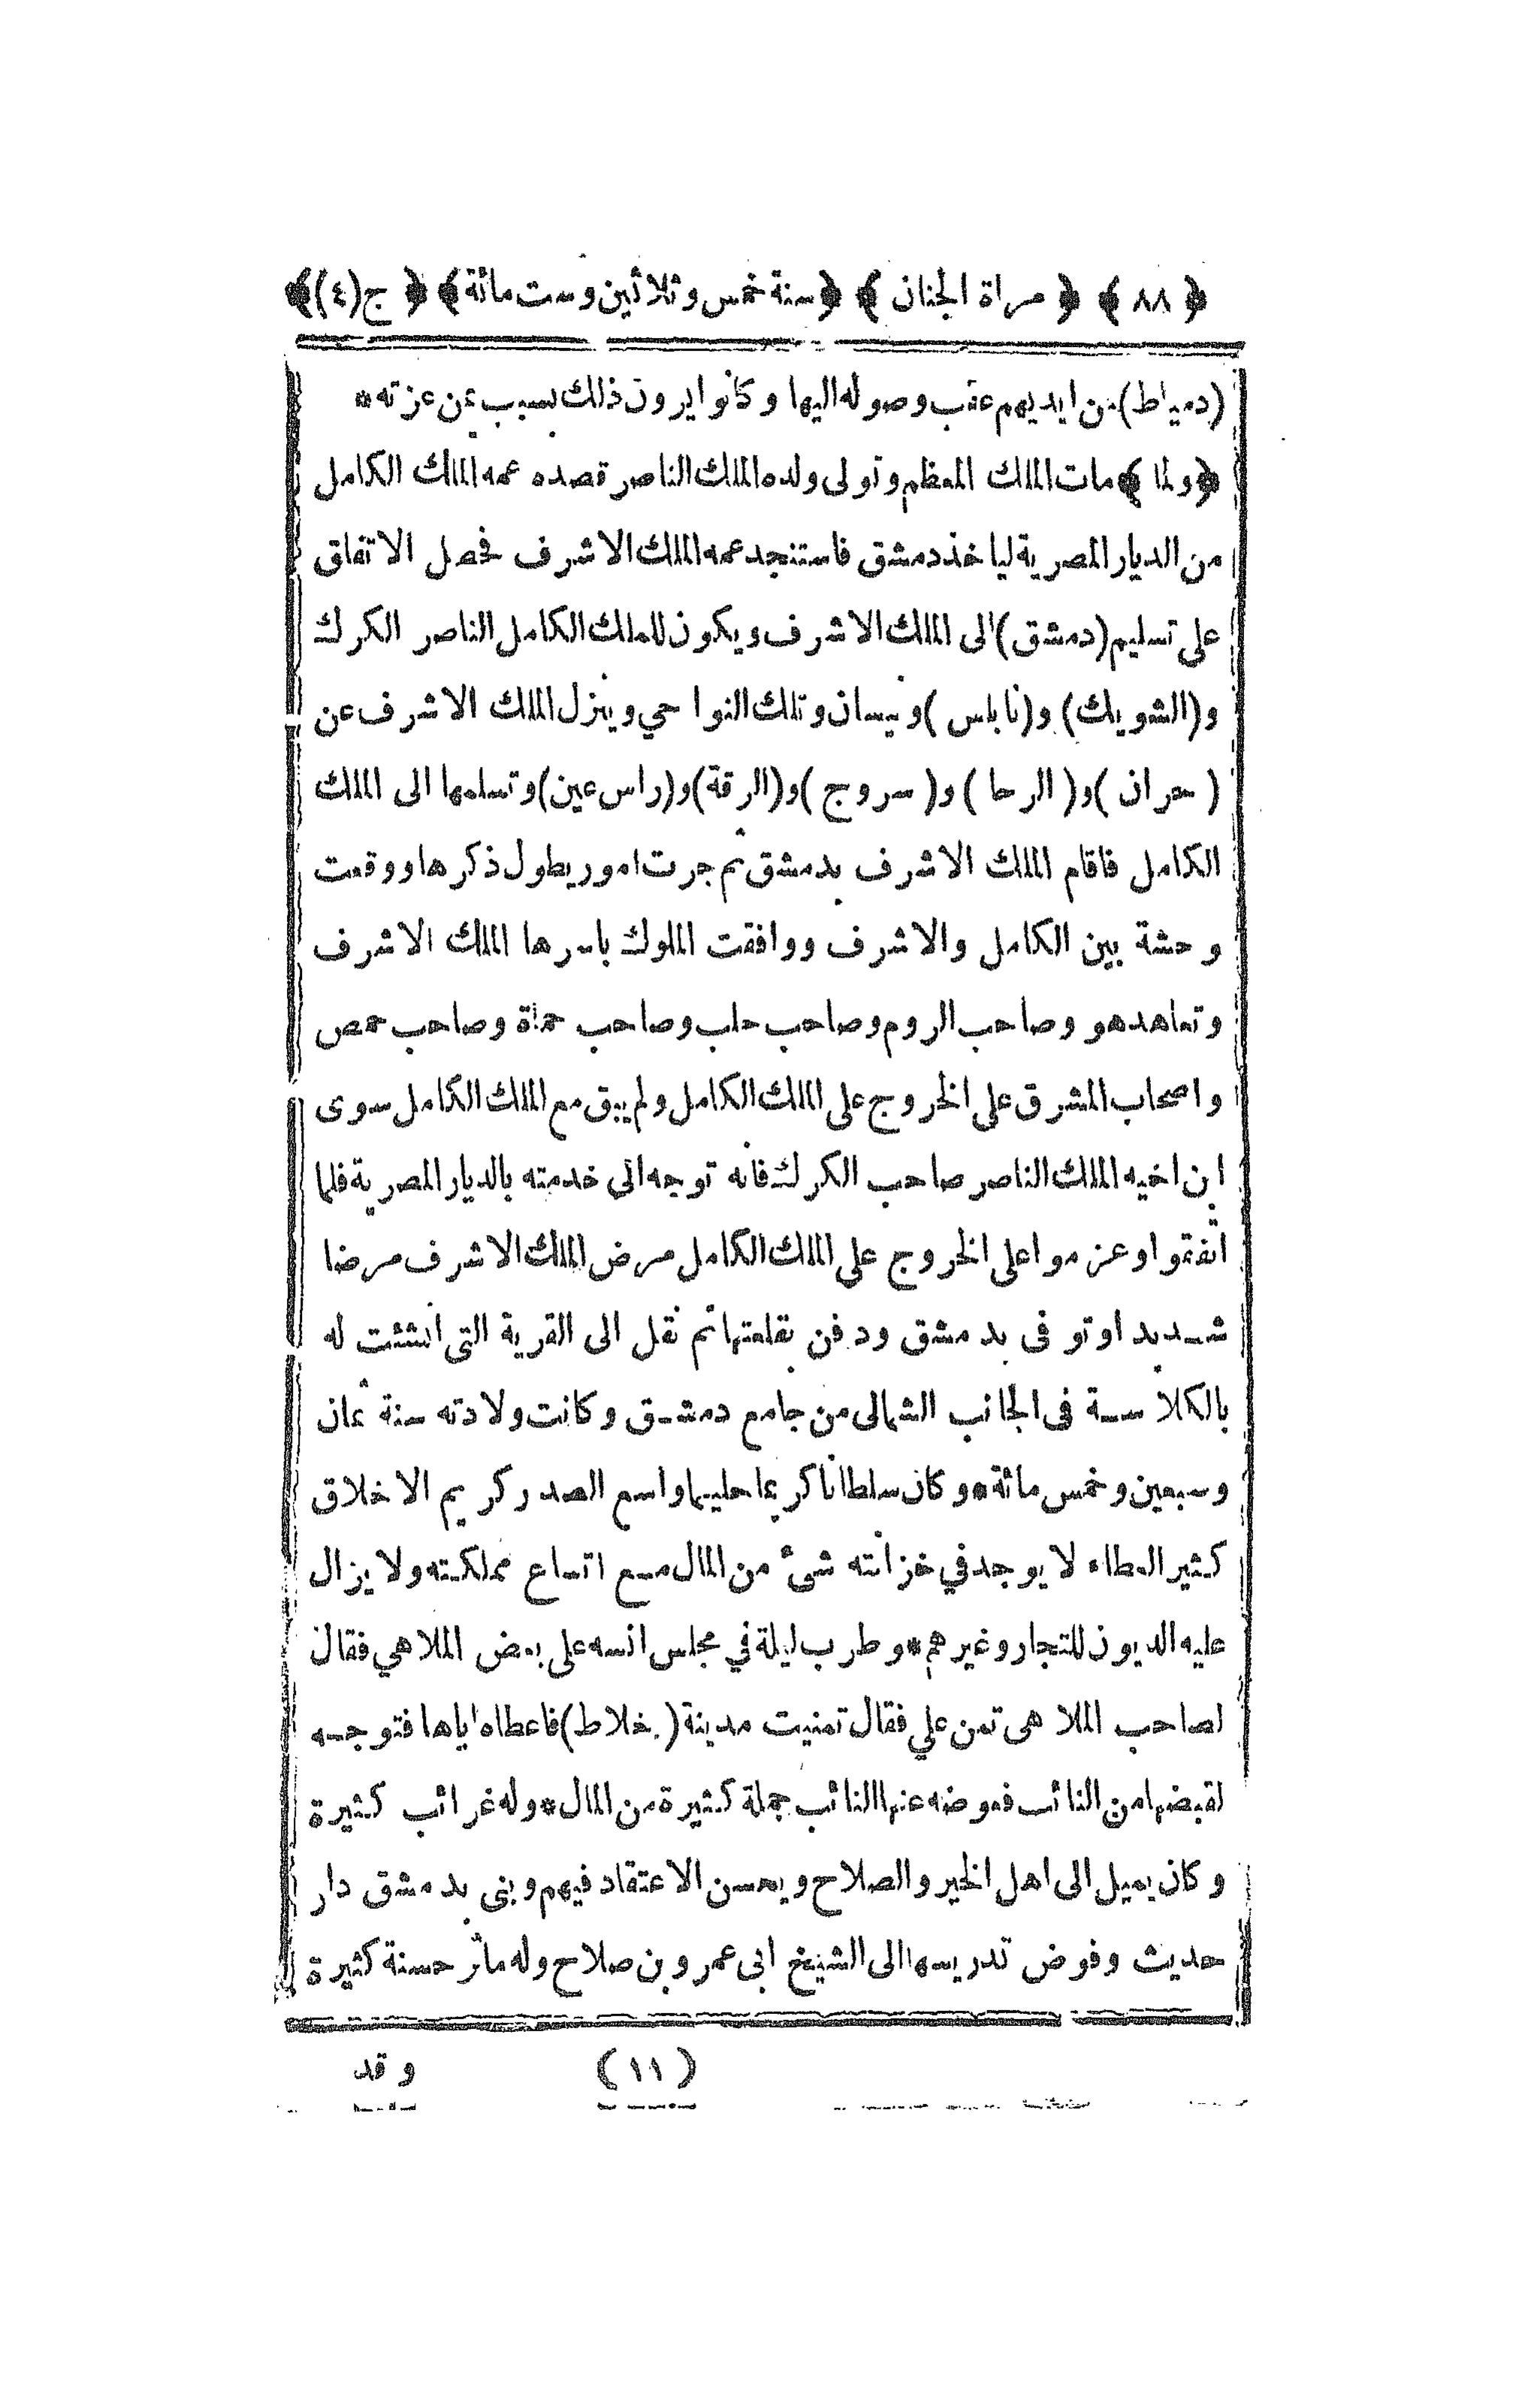 ﴿ ٨٨ ﴾ ﴿ مراة الجنان ﴾ ﴿ سنة خمس وثلاثين وست مائة ﴾ ﴿ ج (٤) ﴾
(دمياط) من ايديهم عقب وصوله اليها وكانوا يرون ذلك بسبب يمن عزته *
﴿ ولما ﴾ مات الملك المعظم وتولى ولده الملك الناصر قصده عمه الملك الكامل
من الديار المصرية ليا خذ دمشق فاستنجد عمه الملك الاشرف فحصل الاتفاق
على تسليم (دمشق) الى الملك الاشرف ويكون للملك الكامل الناصر الكرك
و (الشوبك) و (نابلس) و بيسان وتلك النواحي وينزل الملك الاشرف عن
( حران ) و ( الرحا ) و ( سروج ) و (الرقة) و (راس عين) وتسلمها الى الملك
الكامل فاقام الملك الاشرف بدمشق ثم جرت امور يطول ذكرها ووقعت
وحشة بين الكامل والاشرف ووافقت الملوك باسرها الملك الاشرف
وتعاهد هو وصاحب الروم وصاحب حلب وصاحب حماة وصاحب حمص
واصحاب المشرق على الخروج على الملك الكامل ولم يبق مع الملك الكامل سوى
ابن اخيه الملك الناصر صاحب الكرك فانه توجه الى خدمته بالديار المصرية فلما
اتفقوا وعزموا على الخروج على الملك الكامل مرض الملك الاشرف مرضا
شديدا وتوفى بدمشق ودفن بقلعتها ثم نقل الى القرية التى انشئت له
بالكلاسة فى الجانب الشمالى من جامع دمشق وكانت ولادته سنة ثمان
وسبعين وخمس مائة * وكان سلطانا كريما حليما واسع الصدر كريم الاخلاق
كثير العطاء لا يوجد في خزانته شئ من المال مع اتساع مملكته ولا يزال
عليه الديون للتجار وغيرهم * وطرب ليلة في مجلس انسه على بعض الملاهي فقال
لصاحب الملاهى تمن علي فقال تمنيت مدينة (خلاط) فاعطاه اياها فتوجه
لقبضها من النائب فعوضه عنها النائب جملة كثيرة من المال * وله غرائب كثيرة
وكان يميل الى اهل الخير والصلاح ويحسن الاعتقاد فيهم وبنى بدمشق دار
حديث وفوض تدريسها الى الشيخ ابى عمرو بن صلاح وله ماثر حسنة كثيرة
(١١) وقد